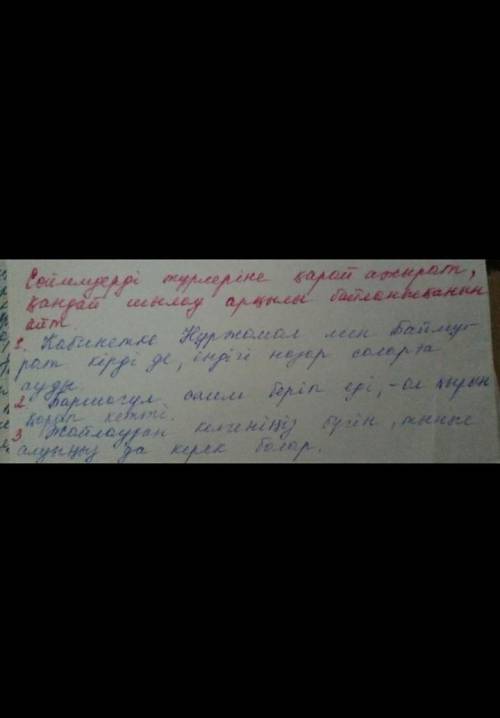 Сөйлемдерді түрлеріне қарай ажырат,
қандай шылау арқылы байланысқанын
айт.
1. Кабинетке Нұржамал мен Баймұ-
рат кірді де, ендігі назар соларға
ауды.
2 Баршагүл сәлем беріп еді, - ол қырын
қарап кетті.
3 Жайлаудан келгеніңіз бүгін, тыныс
алуыңыз да керек болар.